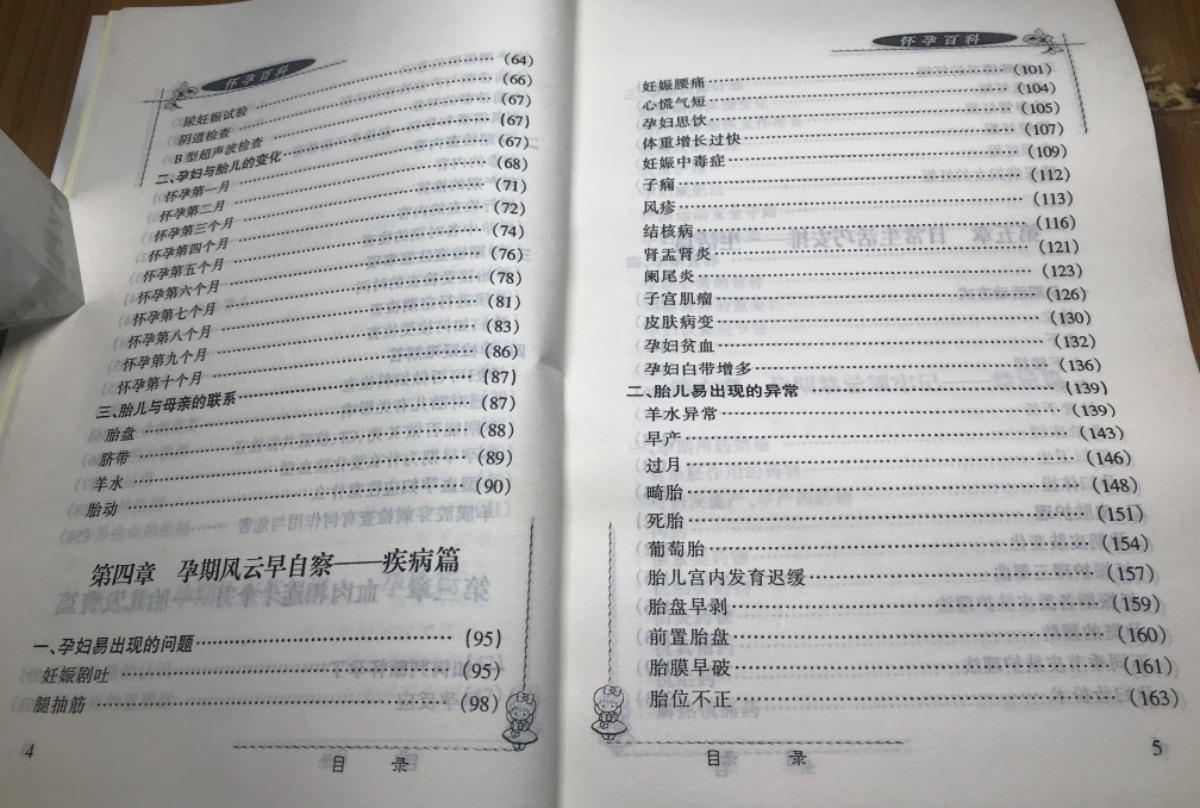 怀孕百科
尿妊娠试验……………………(64)
阴道检查……………………(66)
B型超声波检查……………………(67)
二、孕妇与胎儿的变化……………………(67)
怀孕第一月……………………(67)
怀孕第二月……………………(68)
怀孕第三个月……………………(71)
怀孕第四个月……………………(72)
怀孕第五个月……………………(74)
怀孕第六个月……………………(76)
怀孕第七个月……………………(78)
怀孕第八个月……………………(81)
怀孕第九个月……………………(83)
怀孕第十个月……………………(86)
三、胎儿与母亲的联系……………………(87)
胎盘……………………(87)
脐带……………………(88)
羊水……………………(89)
胎动……………………(90)
第四章 孕期风云早自察——疾病篇
一、孕妇易出现的问题……………………(95)
妊娠剧吐……………………(95)
腿抽筋……………………(98)
4
目 录
怀孕百科
妊娠腰痛……………………(101)
心慌气短……………………(104)
孕妇思饮……………………(105)
体重增长过快……………………(107)
妊娠中毒症……………………(109)
子痫……………………(112)
风疹……………………(113)
结核病……………………(116)
肾盂肾炎……………………(121)
阑尾炎……………………(123)
子宫肌瘤……………………(126)
皮肤病变……………………(130)
孕妇贫血……………………(132)
孕妇白带增多……………………(136)
二、胎儿易出现的异常……………………(139)
羊水异常……………………(139)
早产……………………(143)
过月……………………(146)
畸胎……………………(148)
死胎……………………(151)
葡萄胎……………………(154)
胎儿宫内发育迟缓……………………(157)
胎盘早剥……………………(159)
前置胎盘……………………(160)
胎膜早破……………………(161)
胎位不正……………………(163)
目 录
5